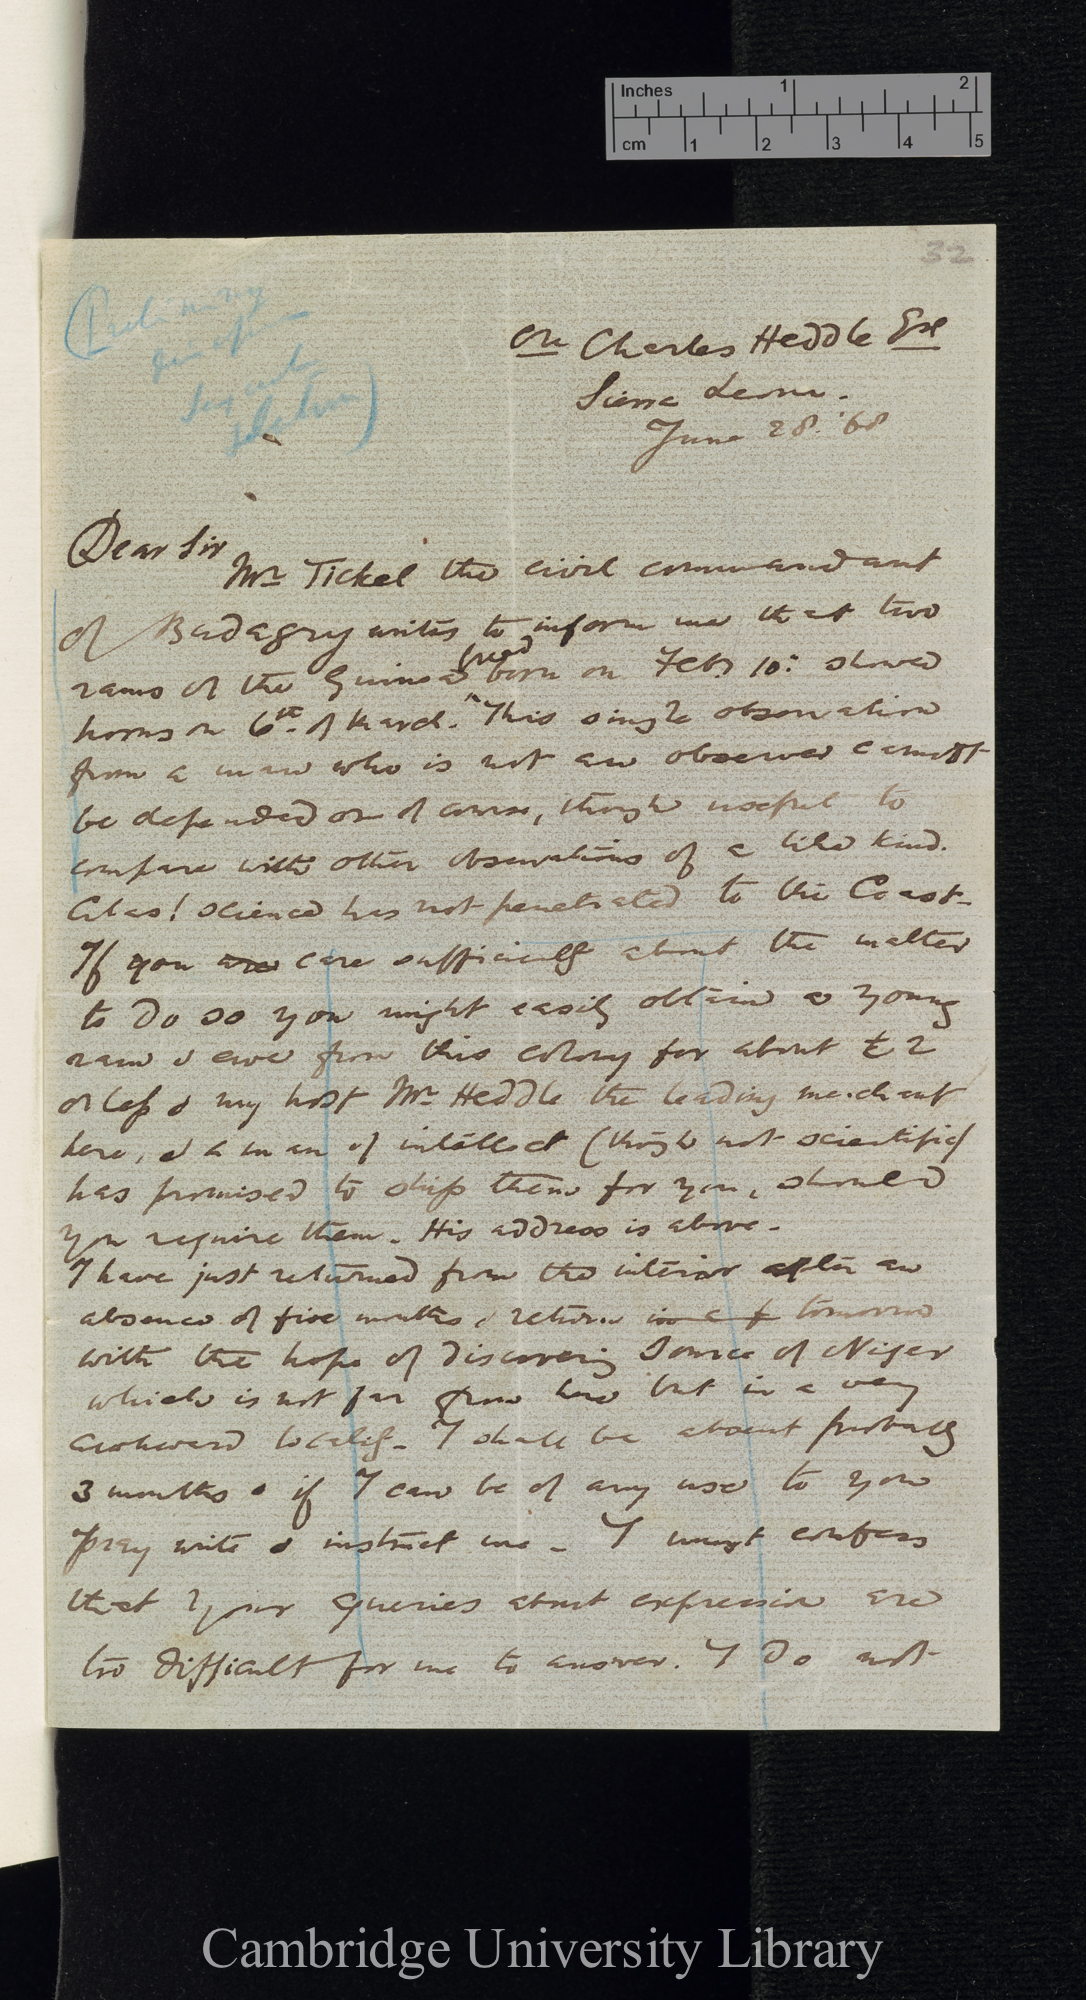 Inches 1 2
cm 1 2 3 4 5
32
Charles Heddle Esq
Sierra Leone.
June 28. '68
Dear Sir
Mr Tickel the civil commandant
of Badagry writes to inform me that two
breed
rams of the Guinea born on Feb 10: showed
horns on 6th. of March. This single observation
from a man who is not an observer cannot
be depended on of course, though useful to
compare with other observations of a like kind.
Alas! science has not penetrated to the Coast-
If you are care sufficiently about the matter
to do so you might easily obtain a young
ram & ewe from this colony for about £2
or less & my host Mr Heddle the leading merchant
here, & a man of intellect (though not scientific)
has promised to ship them for you, should
you require them. His address is above.
I have just returned from the interior after an
absence of five months, return tomorrow
with the hope of discovering Source of Niger
which is not far from here but in a very
awkward locality. I shall be absent probably
3 months & if I can be of any use to you
pray write & instruct me - I must confess
that your queries about expression are
too difficult for me to answer. I do not
Cambridge University Library